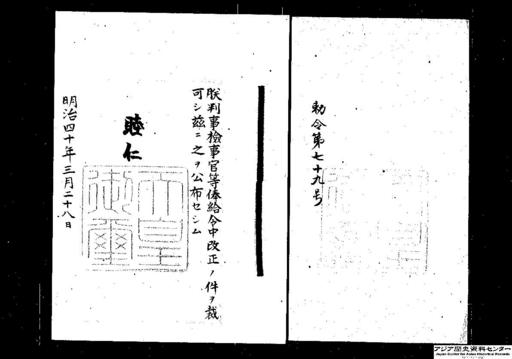 朕判事檢事官等俸給令中改正ノ件ヲ裁
可シ茲ニ之ヲ公布セシム
睦仁
天皇御璽
明治四十年三月二十八日
勅令第七十九号
アジア歴史資料センター
Japan Center for Asian Historical Records